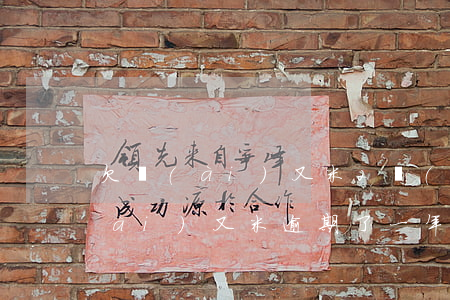 领先来自争峰
成功源於合作
欠 (ai)又米， (
ai)又米逾期了一年